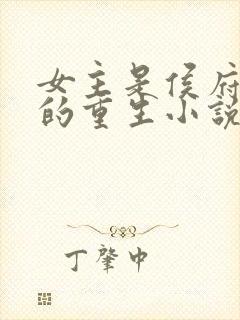 女主是侯府
的重生小说
丁肇中